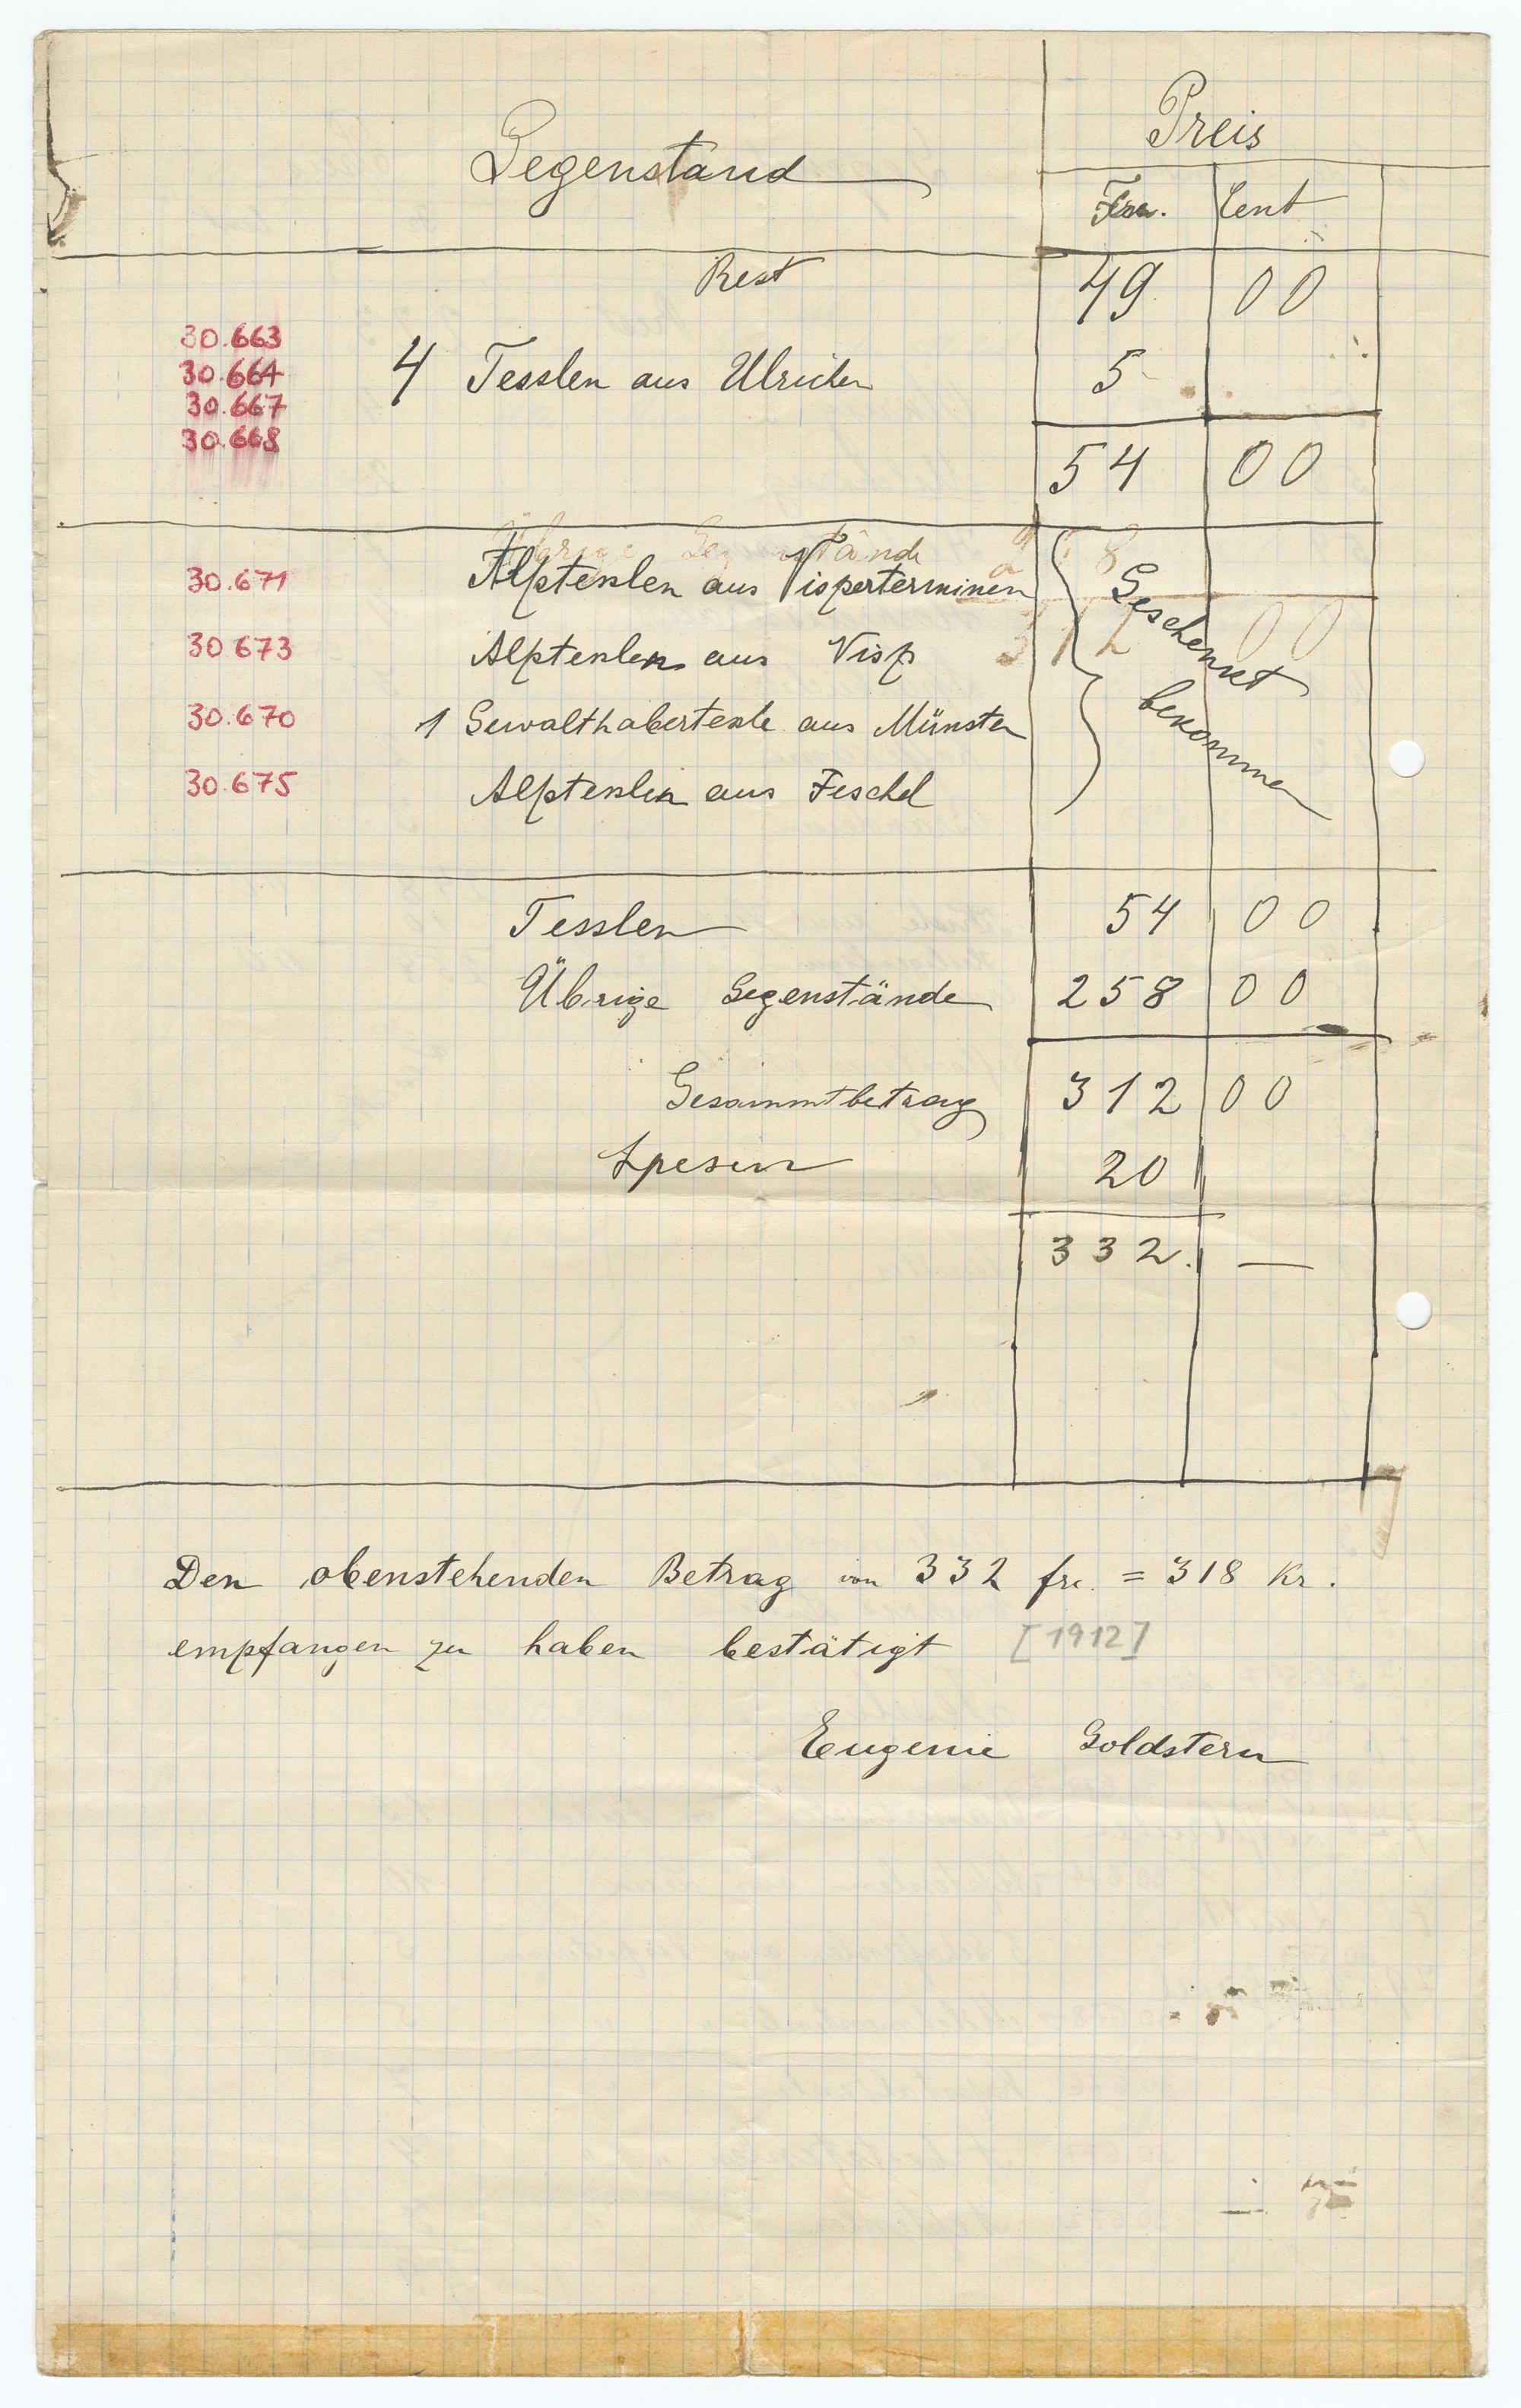 Gegenstand Preis
Frc. Cent
Rest 49 00
30.663
30.664 4 Tesslen aus Ulrichen 5
30.667
30.668
54 00
Übrige Gegenstände
30.671 Alptesslen aus Visperterminen Geschenkt
312 00
30673 Alptesslen aus Visp
30.670 1 Gewalthabertessle aus Münster bekommen
30.675 Alptesslen aus Feschel
Tesslen 54 00
Übrige Gegenstände 258 00
Gesammtbetrag 312 00
Spesen 20
332. —
Den obenstehenden Betrag von 332 frc. = 318 Kr.
empfangen zu haben bestätigt [1912]
Eugenie Goldstern